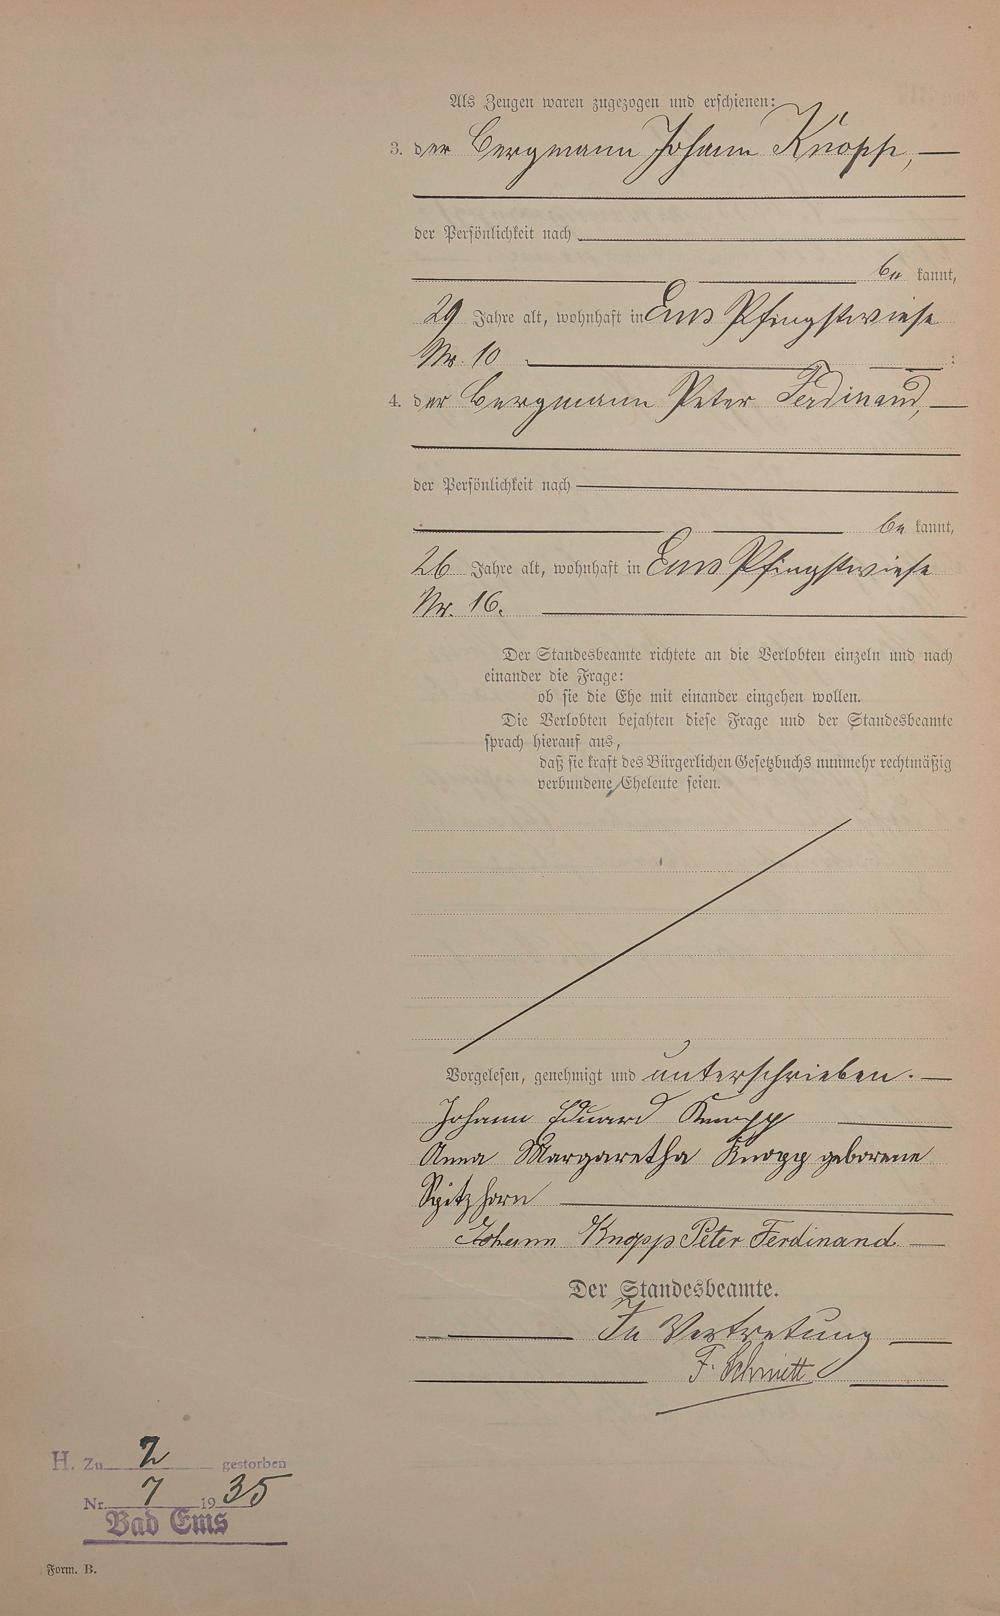 Als Zeugen waren zugezogen und erschienen:
3. der Bergmann Johann Knopp,
der Persönlichkeit nach
be kannt,
29 Jahre alt, wohnhaft in Ems Pfingstwiese
Nr. 10 ;
4. der Bergmann Peter Ferdinand,
der Persönlichkeit nach
be kannt,
26 Jahre alt, wohnhaft in Ems Pfingstwiese
Nr. 16.
Der Standesbeamte richtete an die Verlobten einzeln und nach
einander die Frage:
ob sie die Ehe mit einander eingehen wollen.
Die Verlobten bejahten diese Frage und der Standesbeamte
sprach hierauf aus,
daß sie kraft des Bürgerlichen Gesetzbuchs nunmehr rechtmäßig
verbundene Eheleute seien.
Vorgelesen, genehmigt und unterschrieben.
Johann Eduard Knopp
Anna Margaretha Knopp geborene
Spitzhorn
Johann Knopp Peter Ferdinand
Der Standesbeamte.
In Vertretung
F. Schmitt
H. Zu 2 gestorben
Nr. 7 1935
Bad Ems
Form. B.